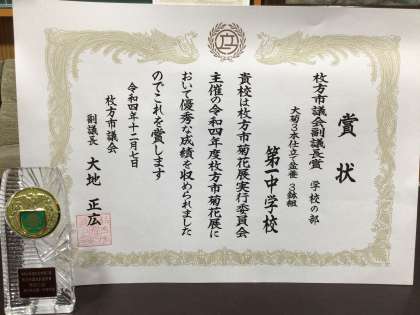 賞状
枚方市議会副議長賞 学校の部
大菊3本仕立て金賞 3鉢組
第一中学校
貴校は枚方市菊花展実行委員会
主催の令和四年度枚方市菊花展に
おいて優秀な成績を収められました
のでこれを賞します
令和四年十二月七日
枚方市議会
副議長 大地正広